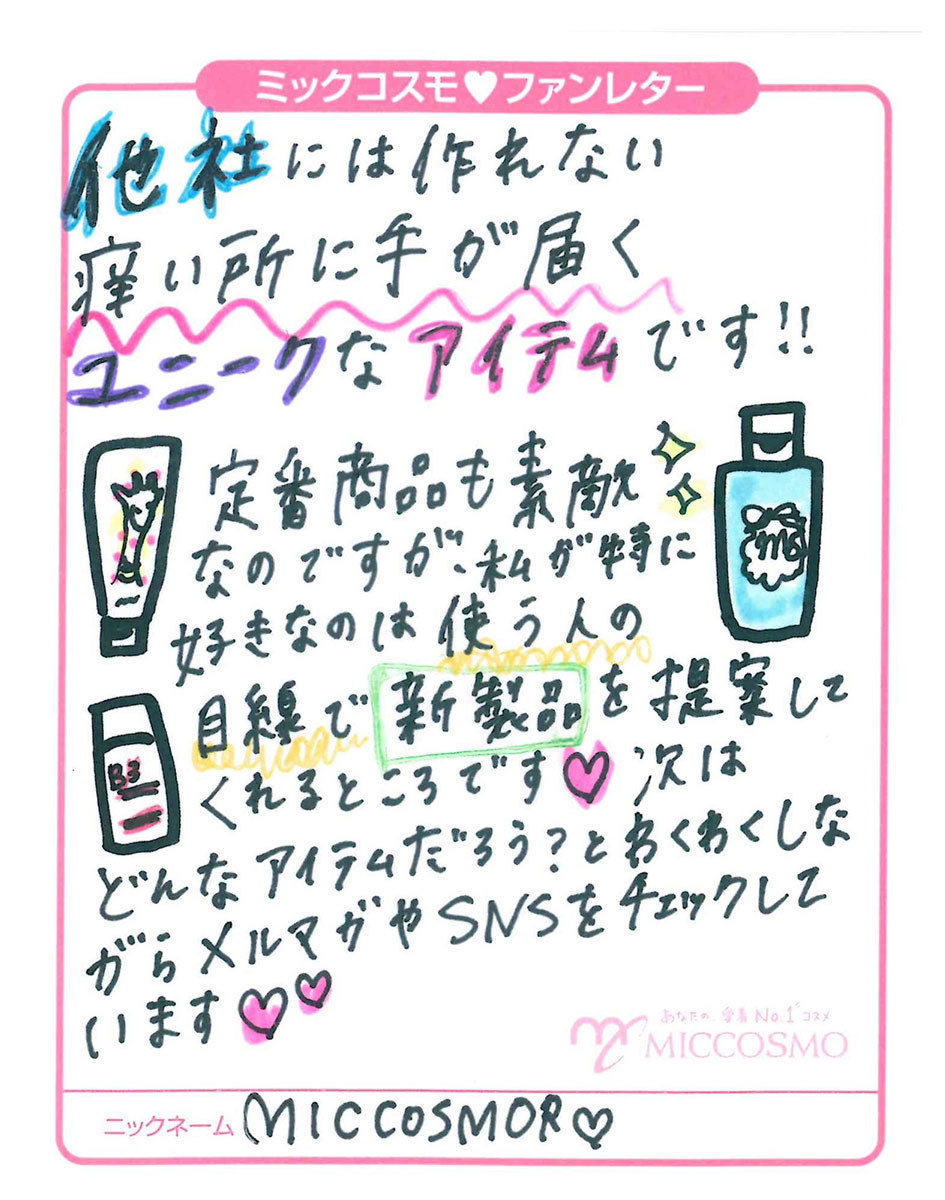 ミックコスモ♥ファンレター
他社には作れない
痒い所に手が届く
ユニークなアイテムです!!
定番商品も素敵
なのですが、私が特に
好きなのは使う人の
目線で新製品を提案して
くれるところです♡ 次は
どんなアイテムだろう?とわくわくしな
がらメルマガやSNSをチェックして
います♡♡
B3
ms
あなたの、愛着No.1コスメ
MICCOSMO
ニックネーム MICCOSMOR♡